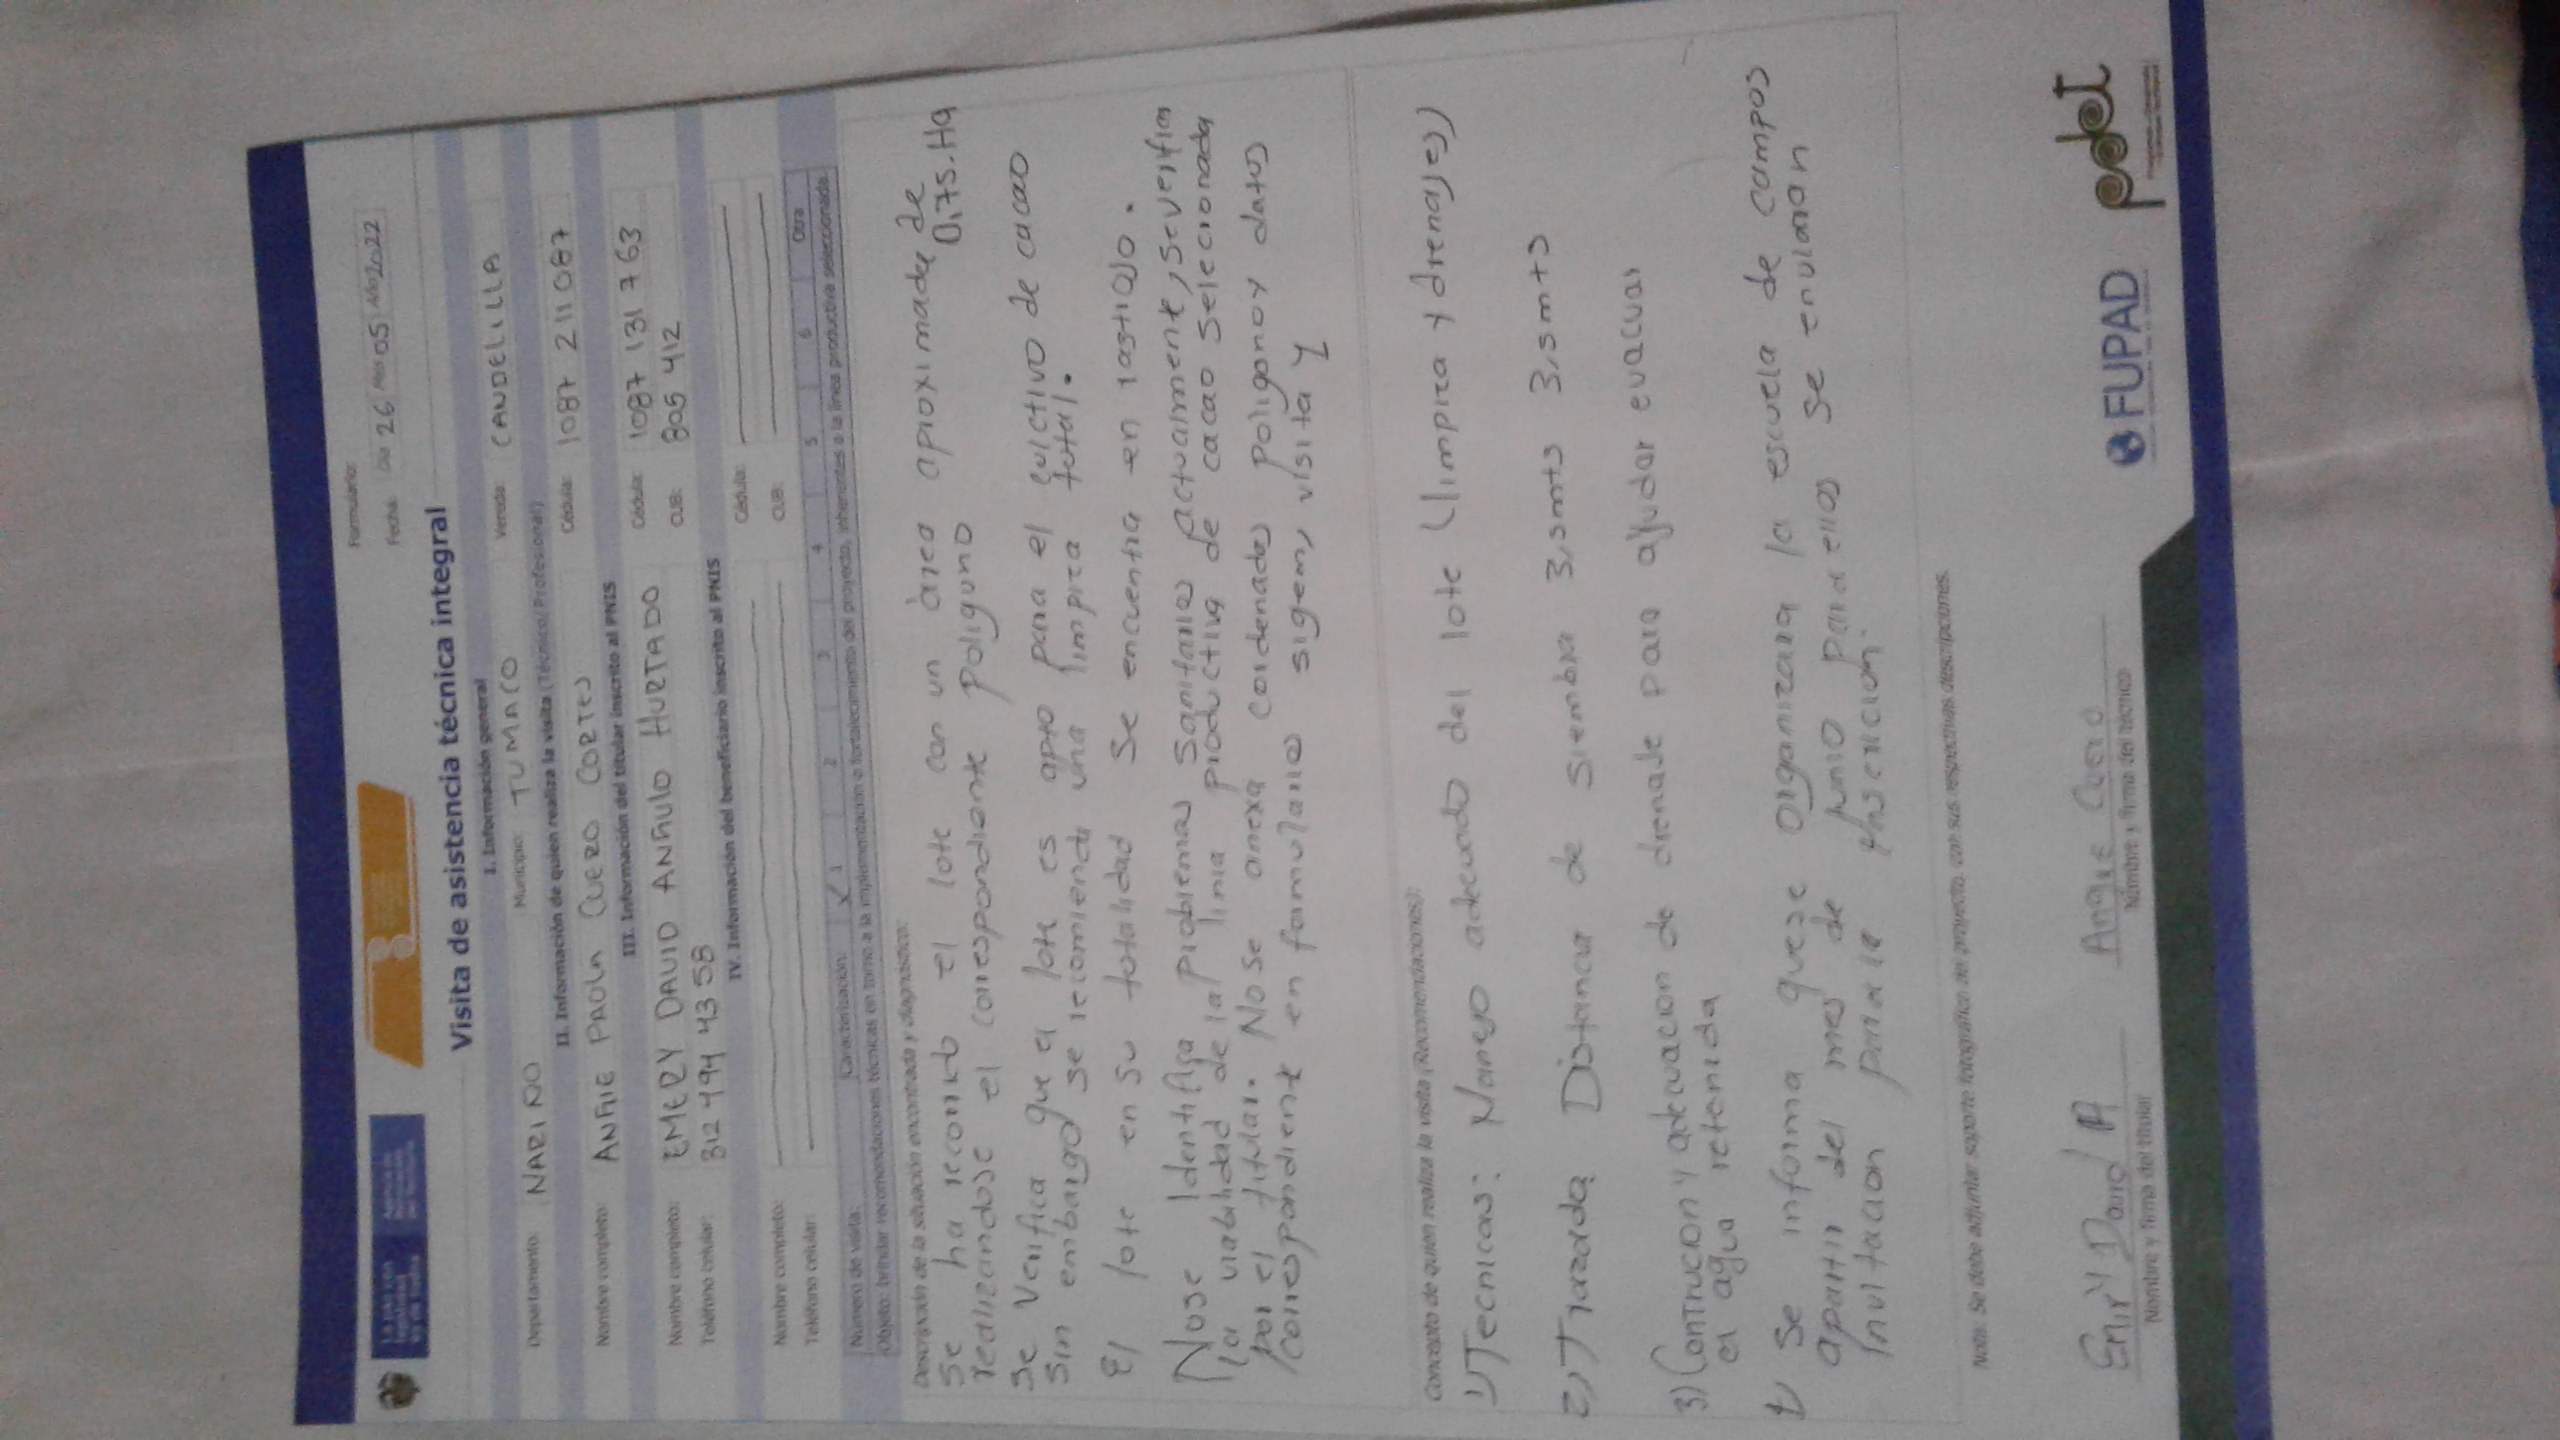 Formulario:
Fecha: Día 26 Mes 05 Año 2022
Visita de asistencia técnica integral
I. Información general
Departamento: NARIÑO Municipio: TUMACO Vereda: CANDELILLA
II. Información de quien realiza la visita (Técnico/Profesional)
Nombre completo: ANGIE PAOLA CUERO CORTES Cédula: 1087 211 087
III. Información del titular inscrito al PNIS
Nombre completo: EMERY DAVID ANGULO HURTADO Cédula: 1087 131 763
Teléfono celular: 312 494 43 58 CUB: 805 412
IV. Información del beneficiario inscrito al PNIS
Nombre completo: Cédula:
Teléfono celular: CUB:
Número de visita: Caracterización: X 1 2 3 4 5 6 Otra
Objeto: brindar recomendaciones técnicas en torno a la implementación o fortalecimiento del proyecto, inherentes a la línea productiva seleccionada.
Descripción de la situación encontrada y diagnóstico:
Se ha recorrido el lote con un área aproximada de
realizandose el correspondiente poligono 0.75.Ha
Se Verifica que el lote es apto para el culctivo de cacao
Sin embargo se recomienda una limpieza total.
El lote en su totalidad se encuentra en rastrojo.
Nose Identifica problemas Sanitarios actualmente, se verifica
la viabilidad de la linia productiva de cacao selecionada
por el titular. No se anexa cordenadas poligono y datos
correspondiente en formulario sigem, visita 1
Concepto de quien realiza la visita (Recomendaciones):
1) Tecnicas: Manejo adecuado del lote (limpiza y drenajes)
2) Trazada Distancia de siembra 3,5mts 3,5mts
3) Contrucion y adecuacion de drenaje para ayudar evacuar
el agua retenida
Se informa que se organizara la escuela de campos
apartir del mes de junio para ellos se envularan
Invitacion para le
Nota: Se debe adjuntar soporte fotográfico del proyecto, con sus respectivas descripciones.
Emiry David A
Nombre y firma del titular
Angie Cuero
Nombre y firma del técnico
FUPAD
pdet